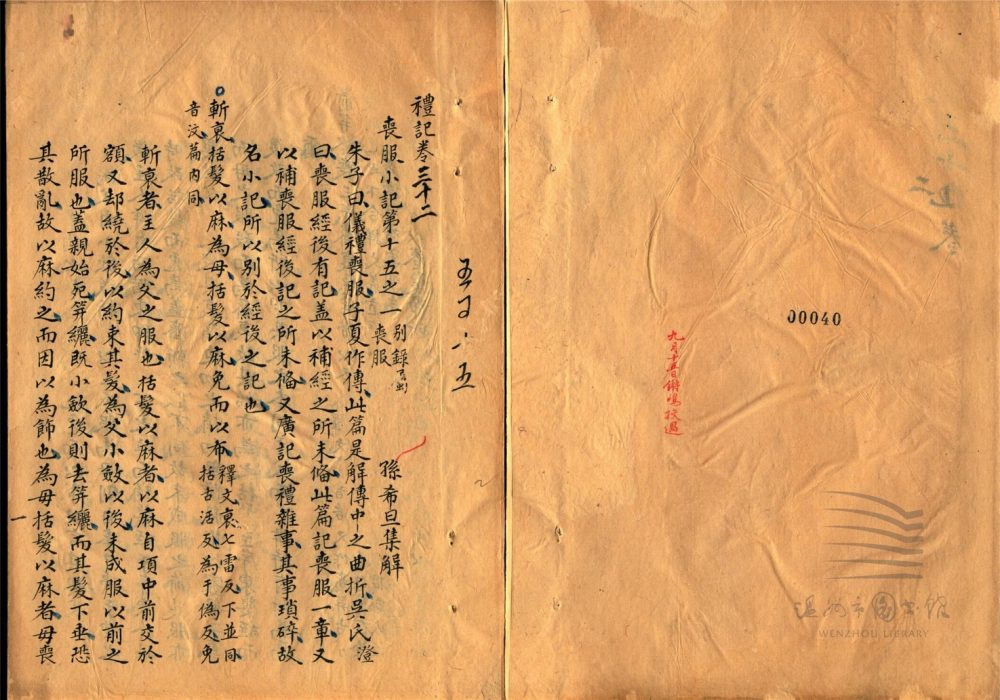 00040
九月十五日鏘鳴校過
温州市图书馆
WENZHOU LIBRARY
禮記卷三十二
喪服小記第十五之一
別錄
喪服
孫希旦集解
朱子曰儀禮喪服子夏作傳此篇是解傳中之曲折吳氏澄
曰喪服經後有記蓋以補經之所未備此篇記喪服一章又
以補喪服經後記之所未備又廣記喪禮雜事其事瑣碎故
名小記所以別於經後之記也
斬衰括髮以麻為母括髮以麻免而以布
釋文衰七雷反下並同
括古活反為于偽反免
音汶篇內同
斬衰者主人為父之服也括髮以麻者以麻自項中前交於
額又却繞於後以約束其髮為父小斂以後未成服以前之
所服也蓋親始死笄纚既小斂後則去笄纚而其髮下垂恐
其散亂故以麻約之而因以為飾也為母括髮以麻者母喪
一